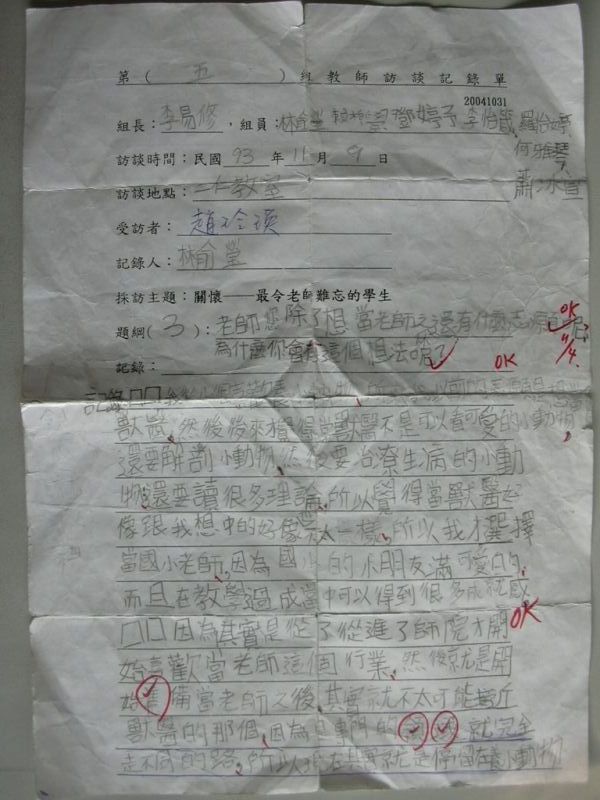 第（五）組教師訪談記錄單
20041031
組長：李易修，組員：林俞瑩 鄧婷予 李怡萱 羅怡婷
何雅琴
蕭冰宣
訪談時間：民國93年11月9日
訪談地點：二仁教室
受訪者：趙玲瑛
記錄人：林俞瑩
採訪主題：關懷——最令老師難忘的學生
題綱（3）：老師您除了想當老師之還有什麼志願呢?
OK
11/4.
為什麼你會有這個想法呢?
OK
記錄：
記錄口口
獸醫，然後後來覺得當獸醫不是可以看可愛的小動物，
還要解剖小動物，然後要治療生病的小動
物，還要讀很多理論，所以覺得當獸醫好
像跟我想中的好像不太一樣，所以我才選擇
當國小老師，因為國小的小朋友滿可愛的，
而且在教學過成當中可以得到很多成就感
OK
口口因為其實是從了從進了師院才開
始喜歡當老師這個行業，然後就是開
始準備當老師之後其實就不太可能接近
獸醫的那個，因為專門的就完全
走不同的路，所以我其實就是停留在養小動物